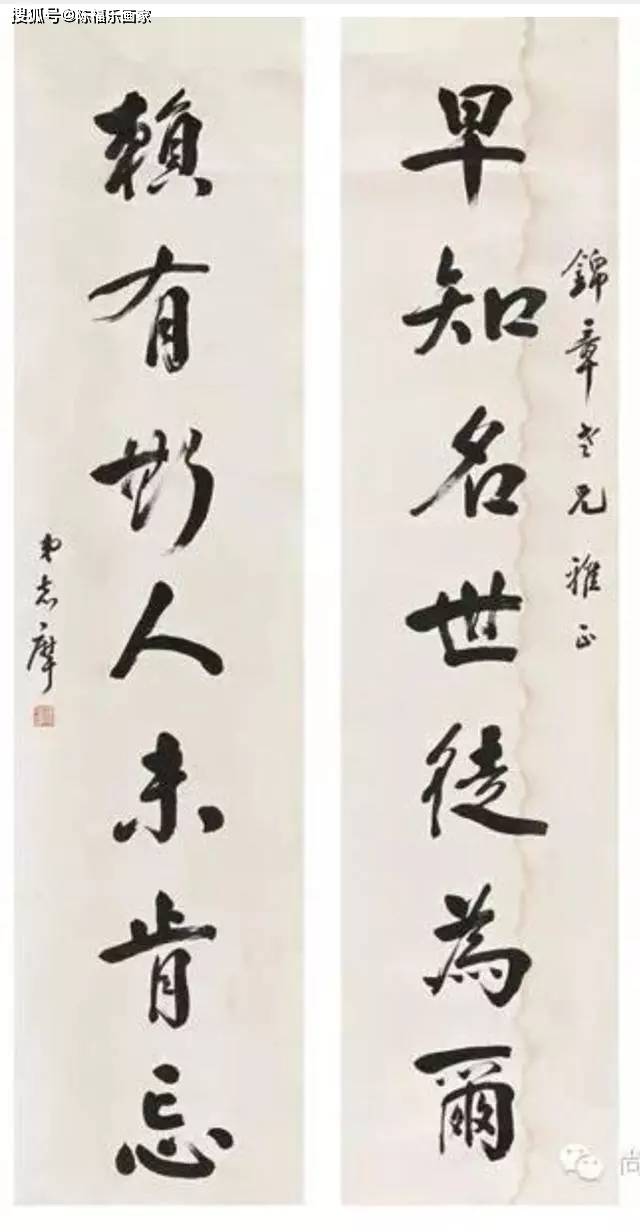 搜狐号@陈福乐画家
錦章老兄雅正
早知名世徒為爾
賴有斯人未肯忘
弟志摩
尚